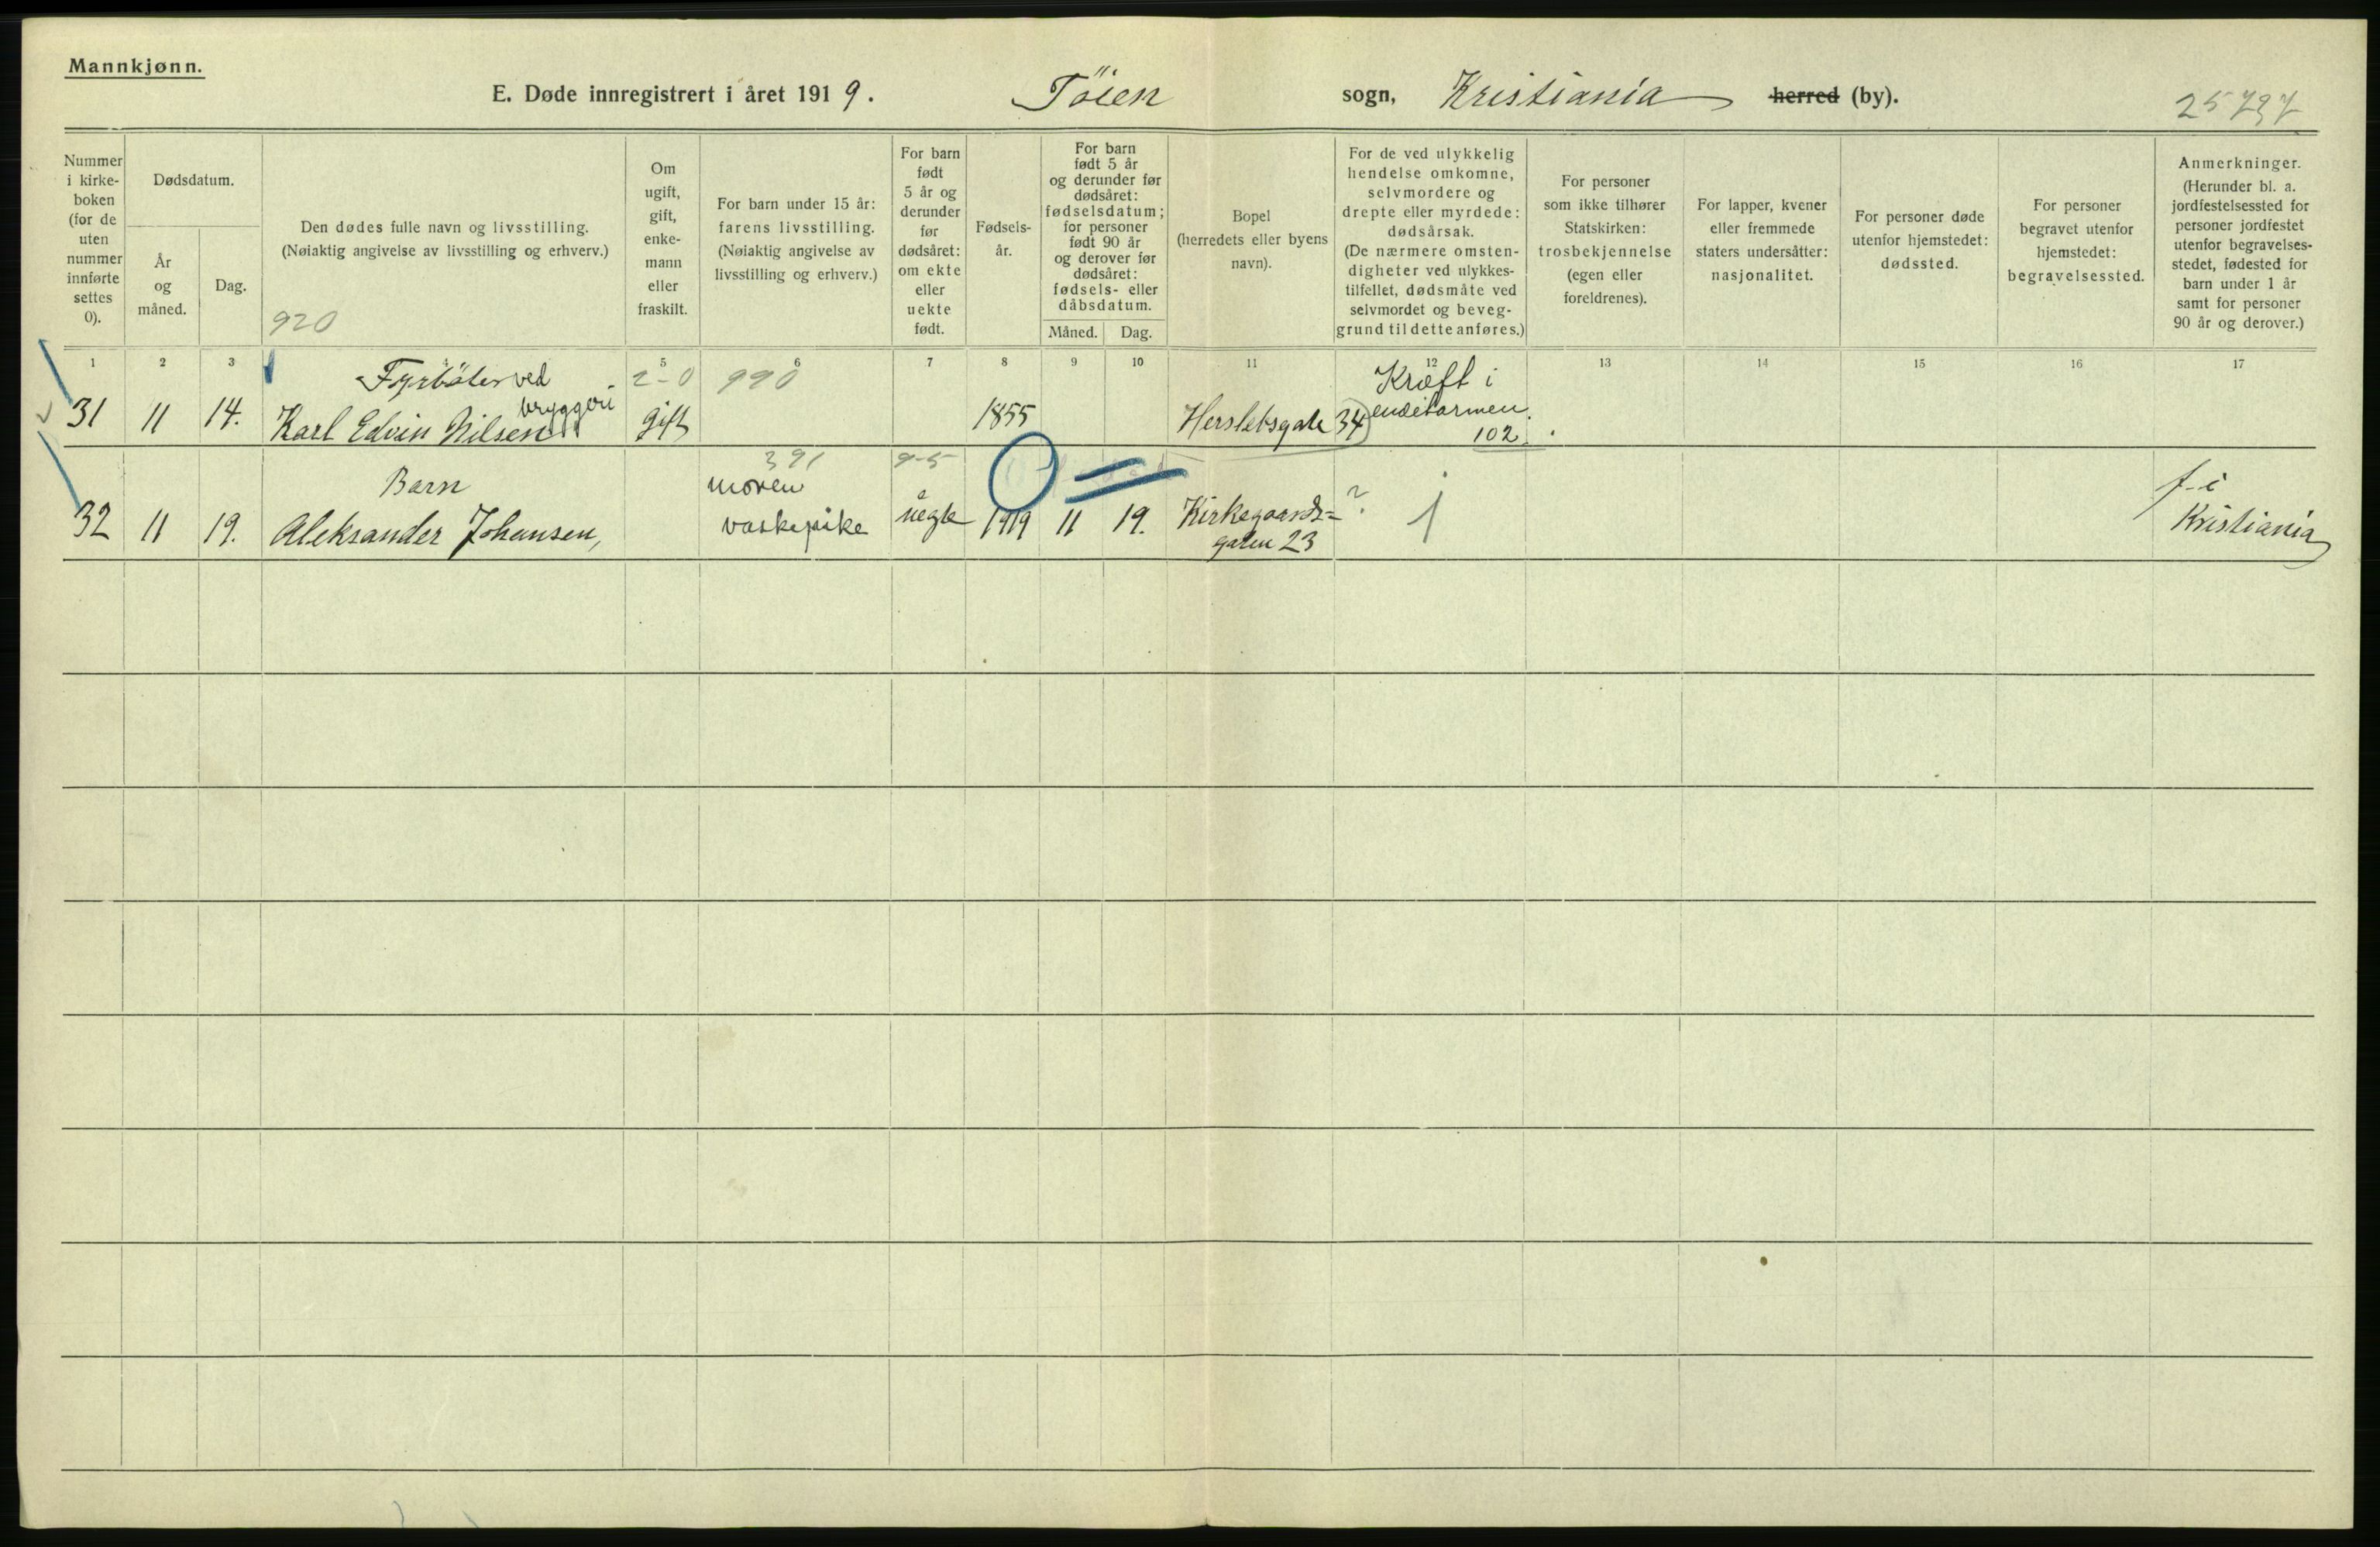 Mannkjønn.
E. Døde innregistrert i året 1919. Töien sogn, Kristiania herred (by).
25737
Nummer i kirke- boken (for de uten nummer innførte settes 0).
Dødsdatum.
År og måned.
Dag.
Den dødes fulle navn og livsstilling.
(Nøiaktig angivelse av livsstilling og erhverv.)
920
Om ugift, gift, enke- mann eller fraskilt.
For barn under 15 år: farens livsstilling. (Nøiaktig angivelse av livsstilling og erhverv.)
For barn født 5 år og derunder før dødsåret: om ekte eller uekte født.
Fødsels- år.
For barn født 5 år og derunder før dødsåret: fødselsdatum; for personer født 90 år og derover før dødsåret: fødsels- eller dåbsdatum.
Måned. Dag.
Bopel (herredets eller byens navn).
For de ved ulykkelig hendelse omkomne, selvmordere og drepte eller myrdede: dødsårsak. (De nærmere omsten- digheter ved ulykkes- tilfellet, dødsmåte ved selvmordet og beveg- grund til dette anføres.)
For personer som ikke tilhører Statskirken: trosbekjennelse (egen eller foreldrenes).
For lapper, kvener eller fremmede staters undersåtter: nasjonalitet.
For personer døde utenfor hjemstedet: dødssted.
For personer begravet utenfor hjemstedet: begravelsessted.
Anmerkninger. (Herunder bl. a. jordfestelsessted for personer jordfestet utenfor begravelses- stedet, fødested for barn under 1 år samt for personer 90 år og derover.)
1 2 3 4 5 6 7 8 9 10 11 12 13 14 15 16 17
Fyrböter ved bryggeri
2-0 990
31 11 14. Karl Edvin Nilsen gift 1855 Hersletsgate 34 Kræft i endetarmen. 102.
Barn 391 moren 9-5
32 11 19. Aleksander Johansen, vaskepike uegte 1919 11 19. Kirkegaards= gaten 23 ? f. i Kristiania